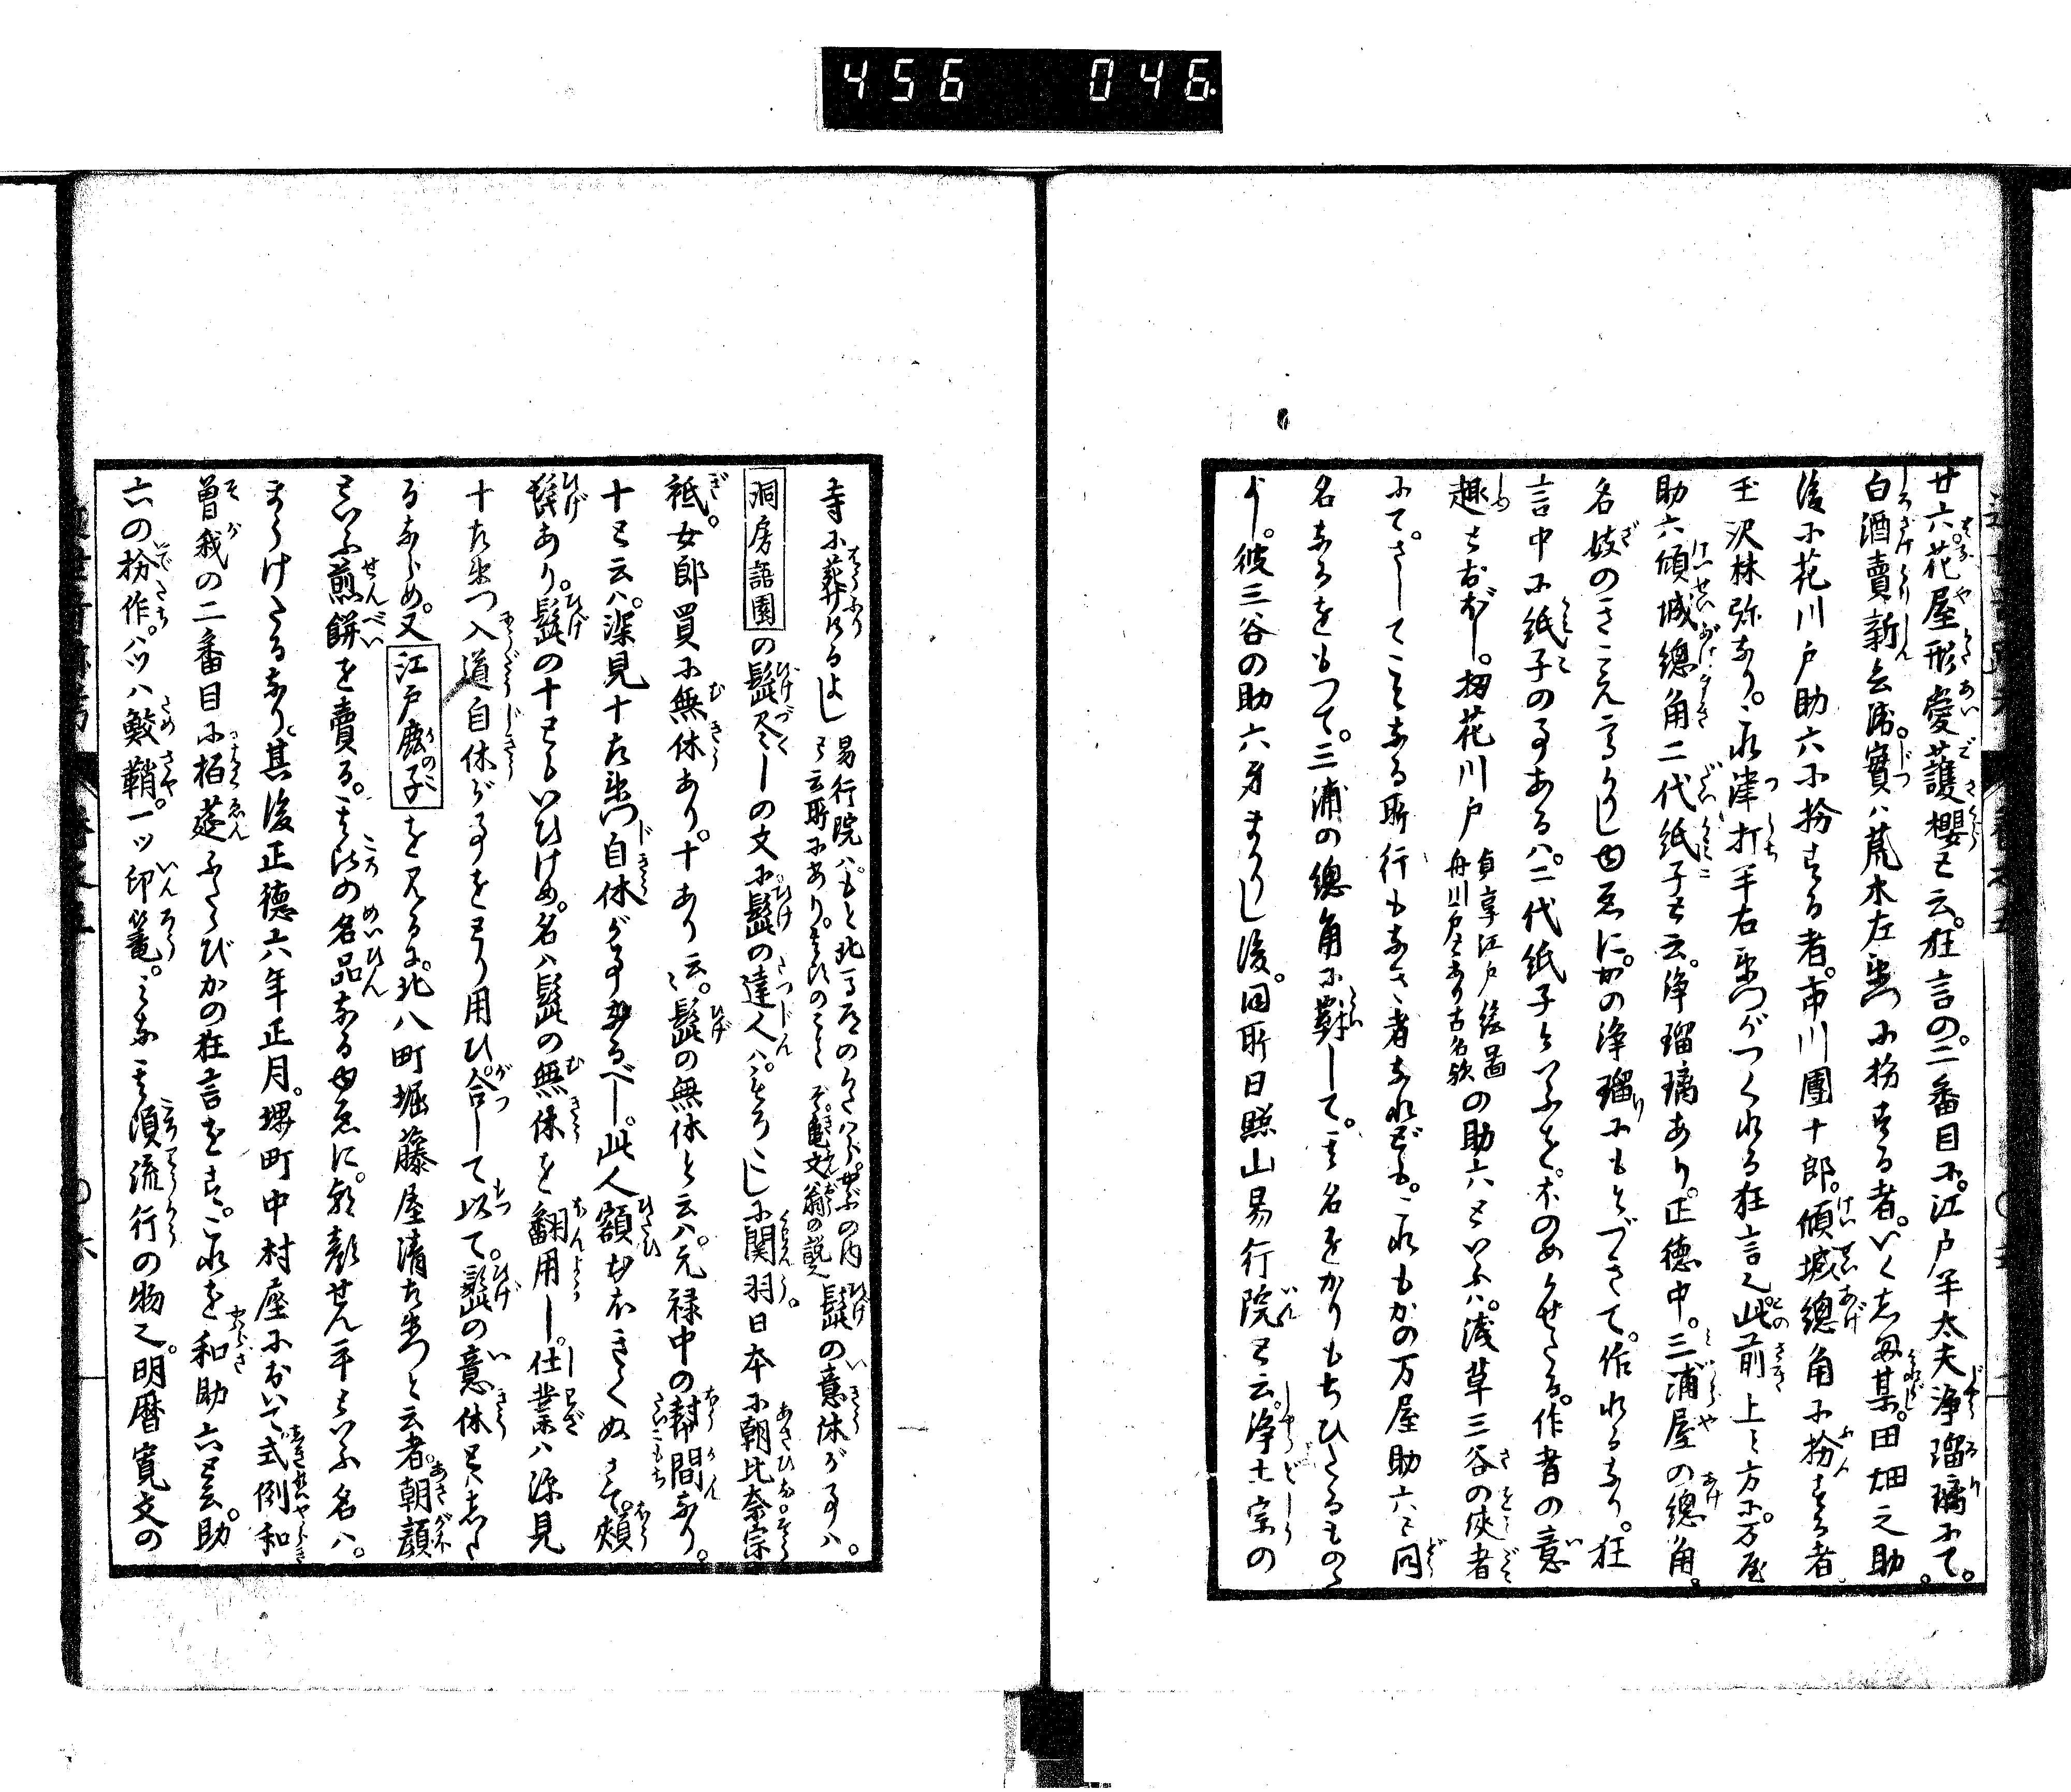 456 046
廿六。花屋形愛護櫻と云。狂言の。二番目に。江戸半太夫浄瑠璃にて。
白酒賣新兵衛。實は荒木左衛門に扮する者。いくしま某。田畑之助。
後に花川戸助六に扮する者。市川團十郎。傾城總角に扮する者。
玉沢林弥なり。これ津打半右衛門がつくれる狂言也。此前上ミ方に。万屋
助六傾城總角二代紙子と云。浄瑠璃あり。正徳中。三浦屋の總角。
名妓のきこえ高かりしゆゑに。かの浄瑠りにもとづきて。作れるなり。狂
言中に紙子の事あるは。二代紙子といふを。ほのめかせたる。作者の意
趣とおぼし。扨花川戸貞享江戸絵図舟川戸とあり古名歟の助六といふは。浅草三谷の侠者
にて。さしてことなる所行もなき者なれども。これもかの万屋助六と同
名なるをもつて。三浦の總角に對して。其名をかりもちひたるもの
也。彼三谷の助六身まかりし後。同所日照山易行院と云。浄土宗の
寺に葬けるよし易行院はもと北馬道のかたはらと云所にあり。髭の意休が事は。
洞房語園の髭尽しの文に髭の達人は。もろこしに関羽。日本に朝比奈宗
祇。女郎買に無休あり。十あり云〻。髭の無休と云は。元禄中の幇間なり。
十と云は。深見十左衛門自休が事なるべし。此人額おほきくぬきて。頬
髭あり。髭の十といひけめ。名は髭の無休を翻用し。仕業は深見
十左衛門入道自休が事をとり用ひ。合して以て。髭の意休としたる
るならめ。又江戸鹿子を見るに。北八町堀藤屋清左衛門と云者。朝顔
といふ煎餅を賣る。其比の名品なるゆゑに。朝顔せん平といふ名は。
まうけたるなり。其後正徳六年正月。堺町中村座において式例和
曽我の二番目に栢莚ふたゝびかの狂言をす。これを和助六と云。助
六の扮作。八ツハ鮫鞘。一ツ印篭。みな其頃流行の物也。明暦寛文の